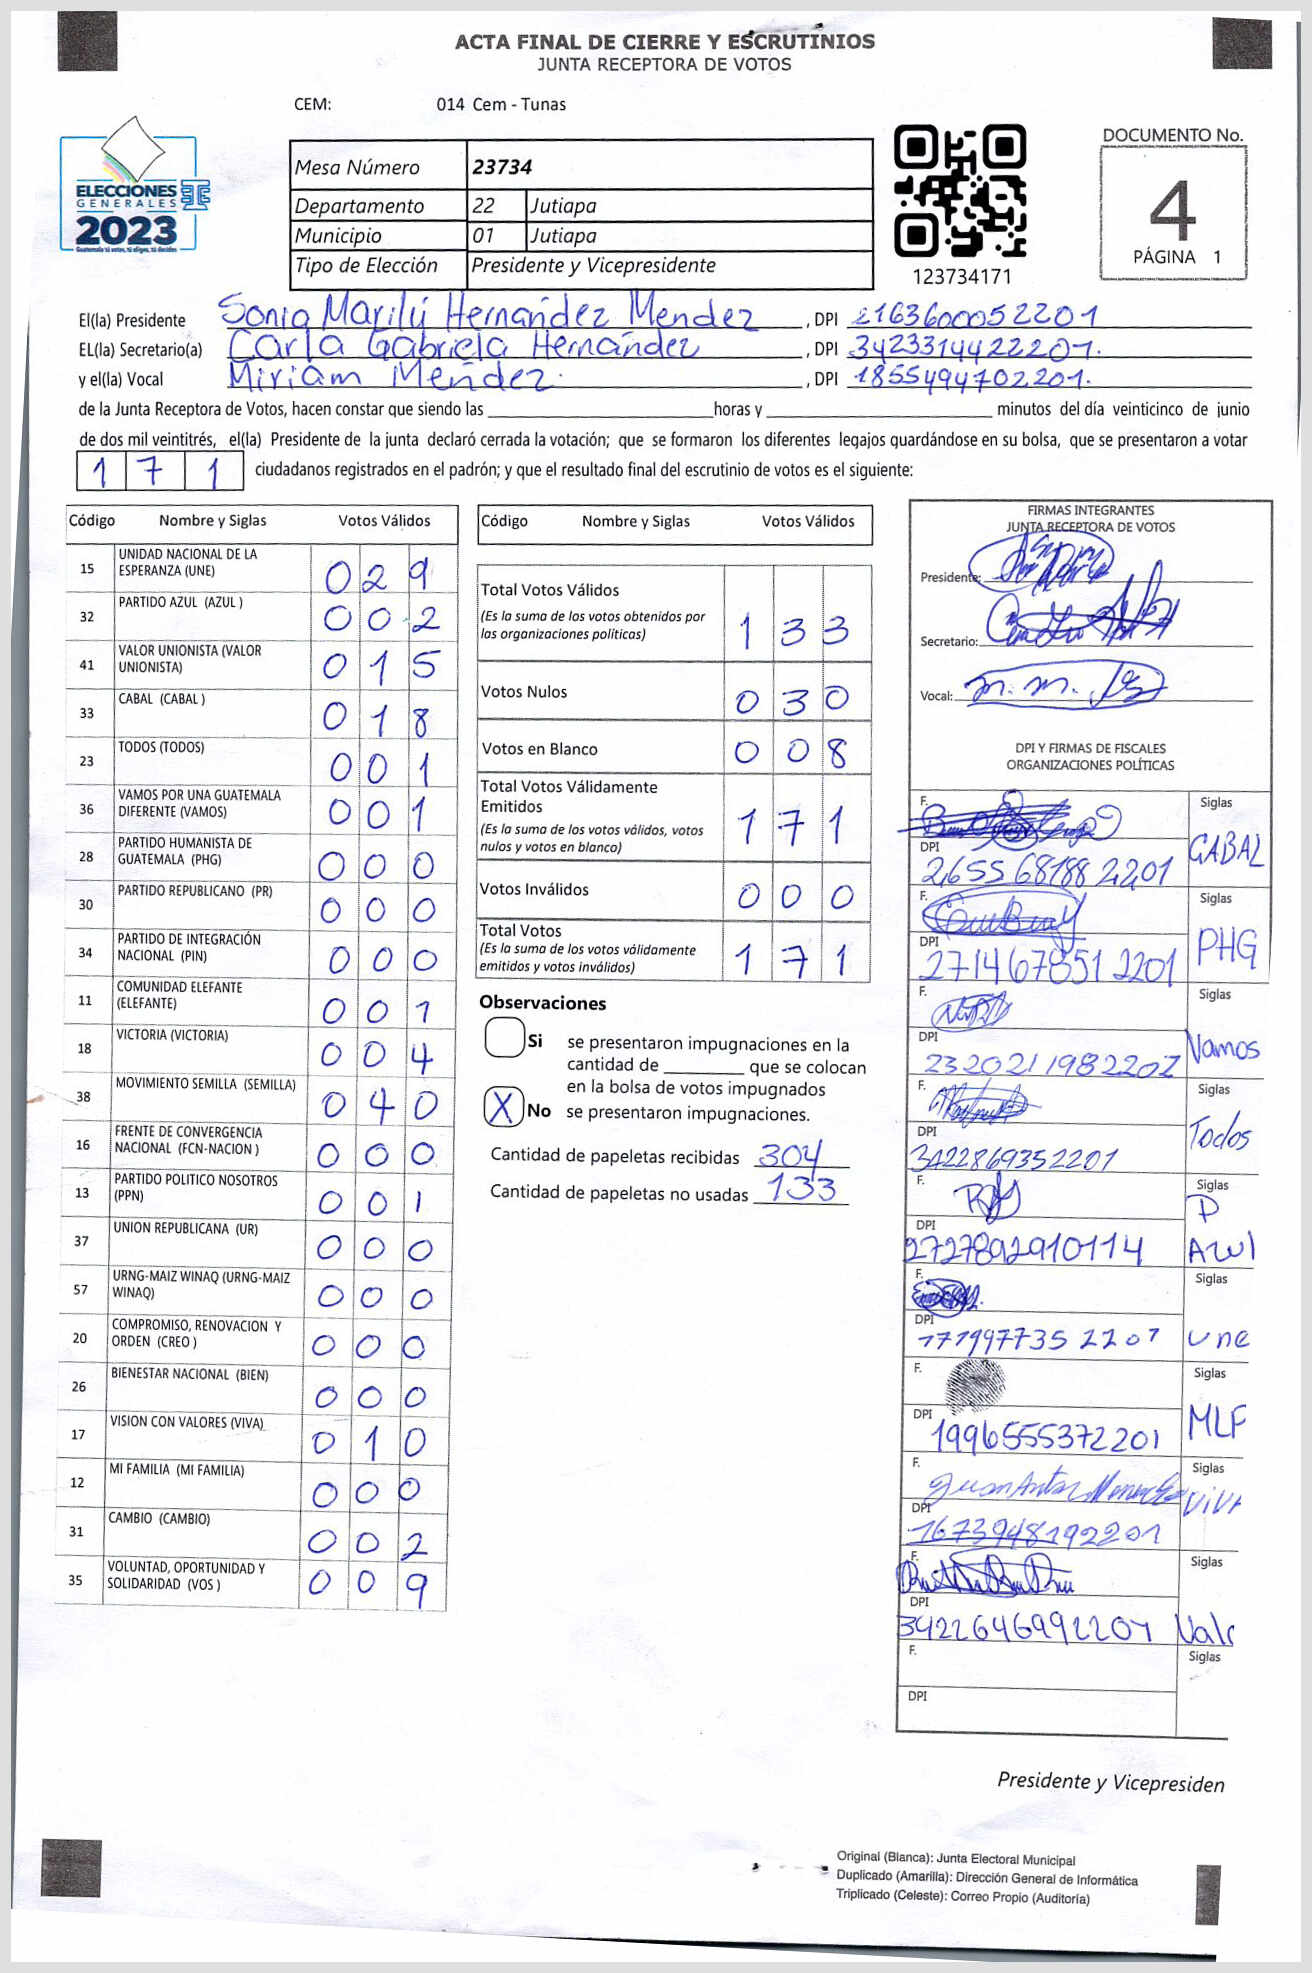 ACTA FINAL DE CIERRE Y ESCRUTINIOS
JUNTA RECEPTORA DE VOTOS
CEM: 014 Cem - Tunas
ELECCIONES
GENERALES
2023
Mesa Número 23734
Departamento 22 Jutiapa
Municipio 01 Jutiapa
Tipo de Elección Presidente y Vicepresidente
123734171
DOCUMENTO No.
4
PÁGINA 1
El(la) Presidente Sonia Marilú Hernández Mendez, DPI 2163600052201
EL(la) Secretario(a) Carla Gabriela Hernández, DPI 3423314422201.
y el(la) Vocal Miriam Mendez. , DPI 1855494702201.
de la Junta Receptora de Votos, hacen constar que siendo las ____ horas y ____ minutos del día veinticinco de junio
de dos mil veintitrés, el(la) Presidente de la junta declaró cerrada la votación; que se formaron los diferentes legajos guardándose en su bolsa, que se presentaron a votar
1 7 1 ciudadanos registrados en el padrón; y que el resultado final del escrutinio de votos es el siguiente:
Código Nombre y Siglas Votos Válidos
15 UNIDAD NACIONAL DE LA ESPERANZA (UNE) 0 2 9
32 PARTIDO AZUL (AZUL ) 0 0 2
41 VALOR UNIONISTA (VALOR UNIONISTA) 0 1 5
33 CABAL (CABAL ) 0 1 8
23 TODOS (TODOS) 0 0 1
36 VAMOS POR UNA GUATEMALA DIFERENTE (VAMOS) 0 0 1
28 PARTIDO HUMANISTA DE GUATEMALA (PHG) 0 0 0
30 PARTIDO REPUBLICANO (PR) 0 0 0
34 PARTIDO DE INTEGRACIÓN NACIONAL (PIN) 0 0 0
11 COMUNIDAD ELEFANTE (ELEFANTE) 0 0 1
18 VICTORIA (VICTORIA) 0 0 4
38 MOVIMIENTO SEMILLA (SEMILLA) 0 4 0
16 FRENTE DE CONVERGENCIA NACIONAL (FCN-NACION ) 0 0 0
13 PARTIDO POLITICO NOSOTROS (PPN) 0 0 1
37 UNION REPUBLICANA (UR) 0 0 0
57 URNG-MAIZ WINAQ (URNG-MAIZ WINAQ) 0 0 0
20 COMPROMISO, RENOVACION Y ORDEN (CREO ) 0 0 0
26 BIENESTAR NACIONAL (BIEN) 0 0 0
17 VISION CON VALORES (VIVA) 0 1 0
12 MI FAMILIA (MI FAMILIA) 0 0 0
31 CAMBIO (CAMBIO) 0 0 2
35 VOLUNTAD, OPORTUNIDAD Y SOLIDARIDAD (VOS ) 0 0 9
Código Nombre y Siglas Votos Válidos
Total Votos Válidos 1 3 3
(Es la suma de los votos obtenidos por
las organizaciones políticas)
Votos Nulos 0 3 0
Votos en Blanco 0 0 8
Total Votos Válidamente
Emitidos 1 7 1
(Es la suma de los votos válidos, votos
nulos y votos en blanco)
Votos Inválidos 0 0 0
Total Votos 1 7 1
(Es la suma de los votos válidamente
emitidos y votos inválidos)
Observaciones
Si se presentaron impugnaciones en la
cantidad de ____ que se colocan
en la bolsa de votos impugnados
X No se presentaron impugnaciones.
Cantidad de papeletas recibidas 304
Cantidad de papeletas no usadas 133
FIRMAS INTEGRANTES
JUNTA RECEPTORA DE VOTOS
Presidente:
Secretario:
Vocal: m. m.
DPI Y FIRMAS DE FISCALES
ORGANIZACIONES POLÍTICAS
F. Siglas
CABAL
DPI 2655 68188 2201
F. Siglas
PHG
DPI 271467851 2201
F. Siglas
Vamos
DPI 2320211982202
F. Siglas
Todos
DPI 3422869352201
F. Siglas
P
Azul
DPI 2727892910114
F. Siglas
DPI 171997735 2201 une
F. Siglas
MLF
DPI 1996555372201
F. Siglas
VIVA
DPI 1673948192201
F. Siglas
DPI
3422646992201 Valr
F. Siglas
DPI
Presidente y Vicepresiden
Original (Blanca): Junta Electoral Municipal
Duplicado (Amarilla): Dirección General de Informática
Triplicado (Celeste): Correo Propio (Auditoría)